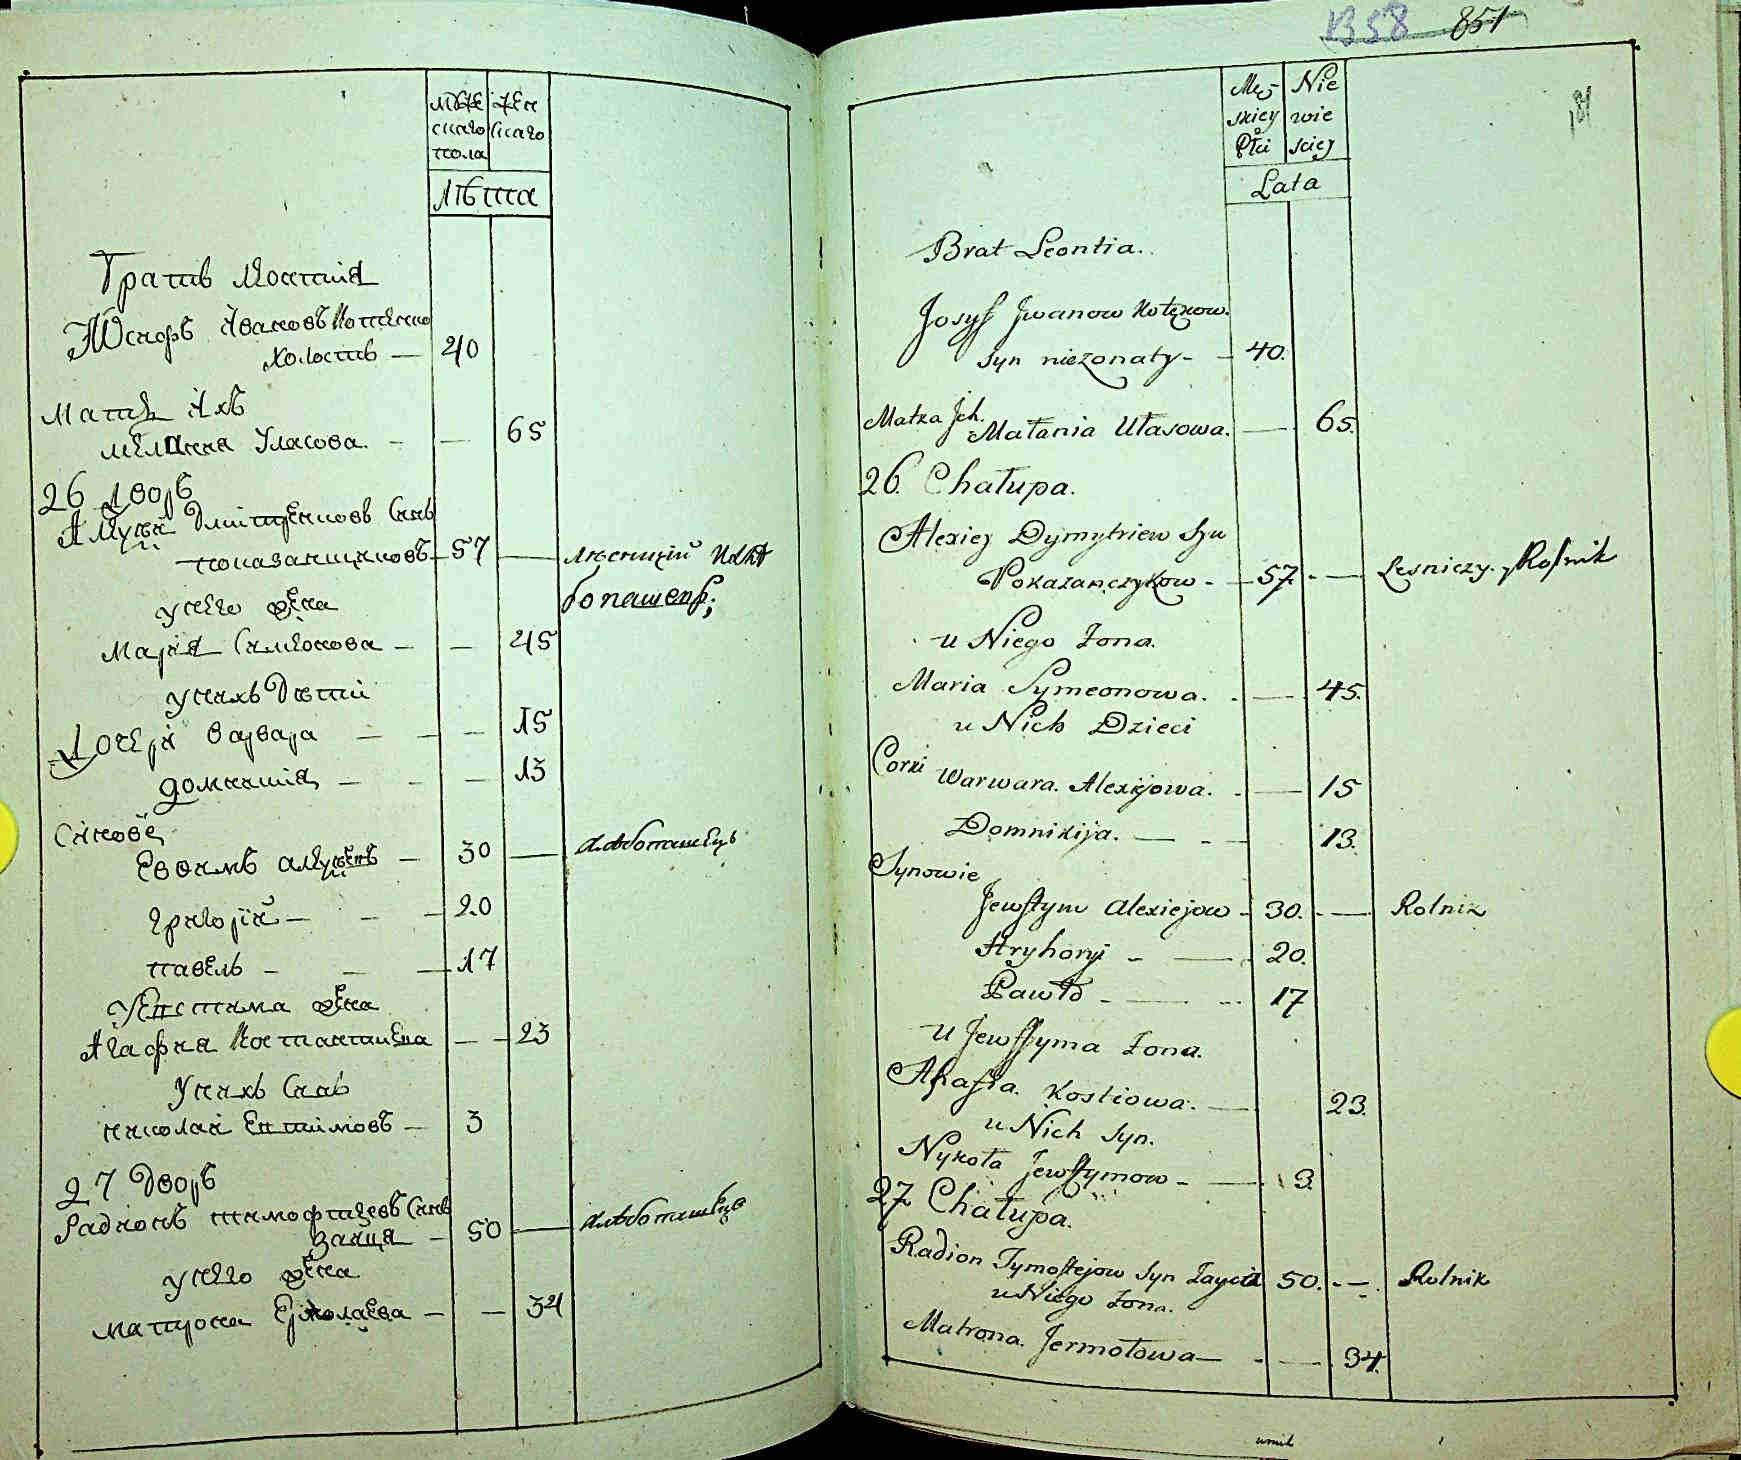 мӱже
скаго
пола
жен
скаго
лѣта
Братъ Леонтія
Юсифъ Ивановъ Котенко
холостъ — 40
Мать Ихъ
мелания Уласова. — — 65
26 дворъ
Алексѣй Дмитренковъ Синъ
показанщиковъ — 57 — лѣсничій
унего жена
Марія Симеонова — — 45
унихъ дѣти
Дочери варвара — — — 15
домникия — — — 13
Синове
Евфимъ — 30 — хлѣбопашецъ
григорій — — — 20
павелъ — — — 17
жена
Агафия — — 23
Унихъ Синъ
николай — 3
27 дворъ
Радионъ тимофиевъ Синъ
Заяця — 50 — хлѣбопашецъ
унего жена
матрона Ермолаева — — 34
1358 851
181
Męz
skiey
Płci
Nie
wie
sciej
Lata
Brat Leontia.
Josyf Jwanow Kotenkow.
syn niezonaty — 40.
Matka Jch.
Małania Ułasowa. — 65.
26. Chałupa.
Alexiey Dymytriew Syn
Pokazanczykow — 57. — Lesniczy. Rolnik
u Niego Zona.
Maria Symeonowa. — 45.
u Nich Dzieci
Corki Warwara. Alexiejowa. — 15
Domnikija. — 13.
Synowie
Jewftym Alexiejow — 30. — Rolnik
Hryhoryi — 20.
Pawło — 17
u Jewftyma Zona.
Ahafia. Kostiowa. — 23.
u Nich Syn.
Nykoła Jewftymow — 3.
27. Chałupa.
Radion Tymoftejow Syn Zaycia 50. — Rolnik
u Niego Zona.
Matrona. Jermołowa — 34.